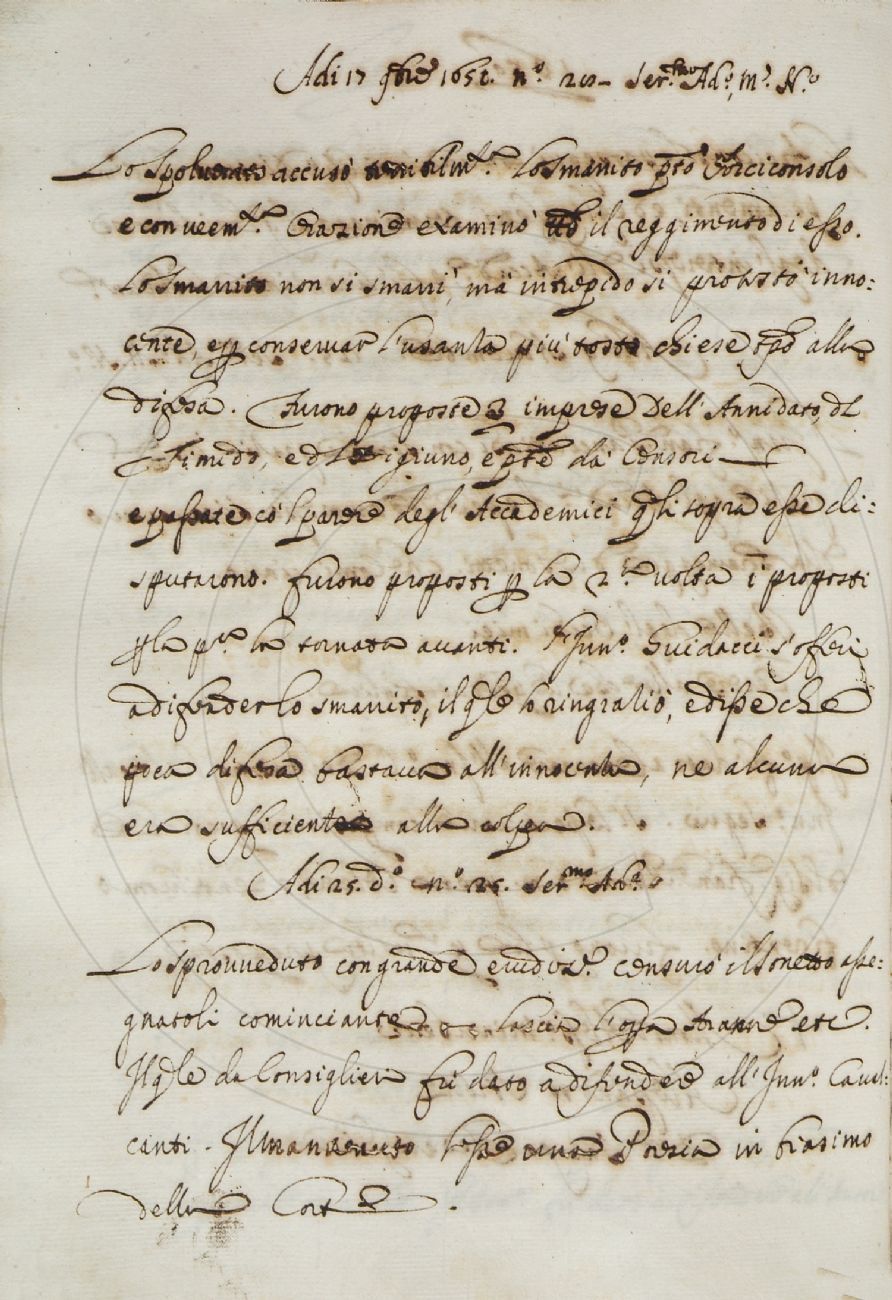 Adi 17 9bre 1651. n.º 20 Ser.mo Ad.º, m.º N.º
Lo Spolverato accusò terribilm.te lo Smarrito p.to Arciconsolo
e con veem.te Orazione examinò tt.º il reggimento di esso.
Lo Smarrito non si smarrì, mà intrepido si protestò inno:
cente, e p conservar l'usanza più tosto chiese tpo alla
difesa. Furono proposte 3 imprese Dell' Annidato, del
Timido, e del Digiuno, e pte da Censori
e passate co 'l parere degl' Accademici qli sopra esse di:
sputarono. furono proposti p la 2.da volta i proposti
p la pr.a la tornata avanti. L'Inn.º Guidacci s'offerì
a difender lo smarrito, il qle lo ringraziò, e disse che
poca difesa bastava all'innocenza, ne alcuna
era sufficiente alla colpa.
Adi 25. d.º n.º 25. Ser.mo Ad.º
Lo Sprovveduto con grande erudiz.e censurò il sonetto asse:
gnatoli cominciante Lascia l'opra Aranne etc.
Il qle da Consiglieri fù dato a difendere all' Inn.º Caval:
canti. Il mantenuto lesse una Poesia in biasimo
della Corte.